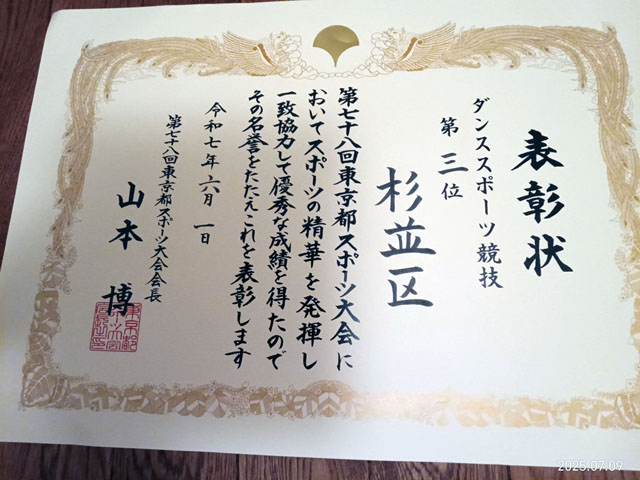 表彰状
ダンススポーツ競技
第三位
杉並区
第七十八回東京都スポーツ大会に
おいてスポーツの精華を発揮し
一致協力して優秀な成績を得たので
その名誉をたたえこれを表彰します
令和七年六月一日
第七十八回東京都スポーツ大会会長
山本博
2025.07.09